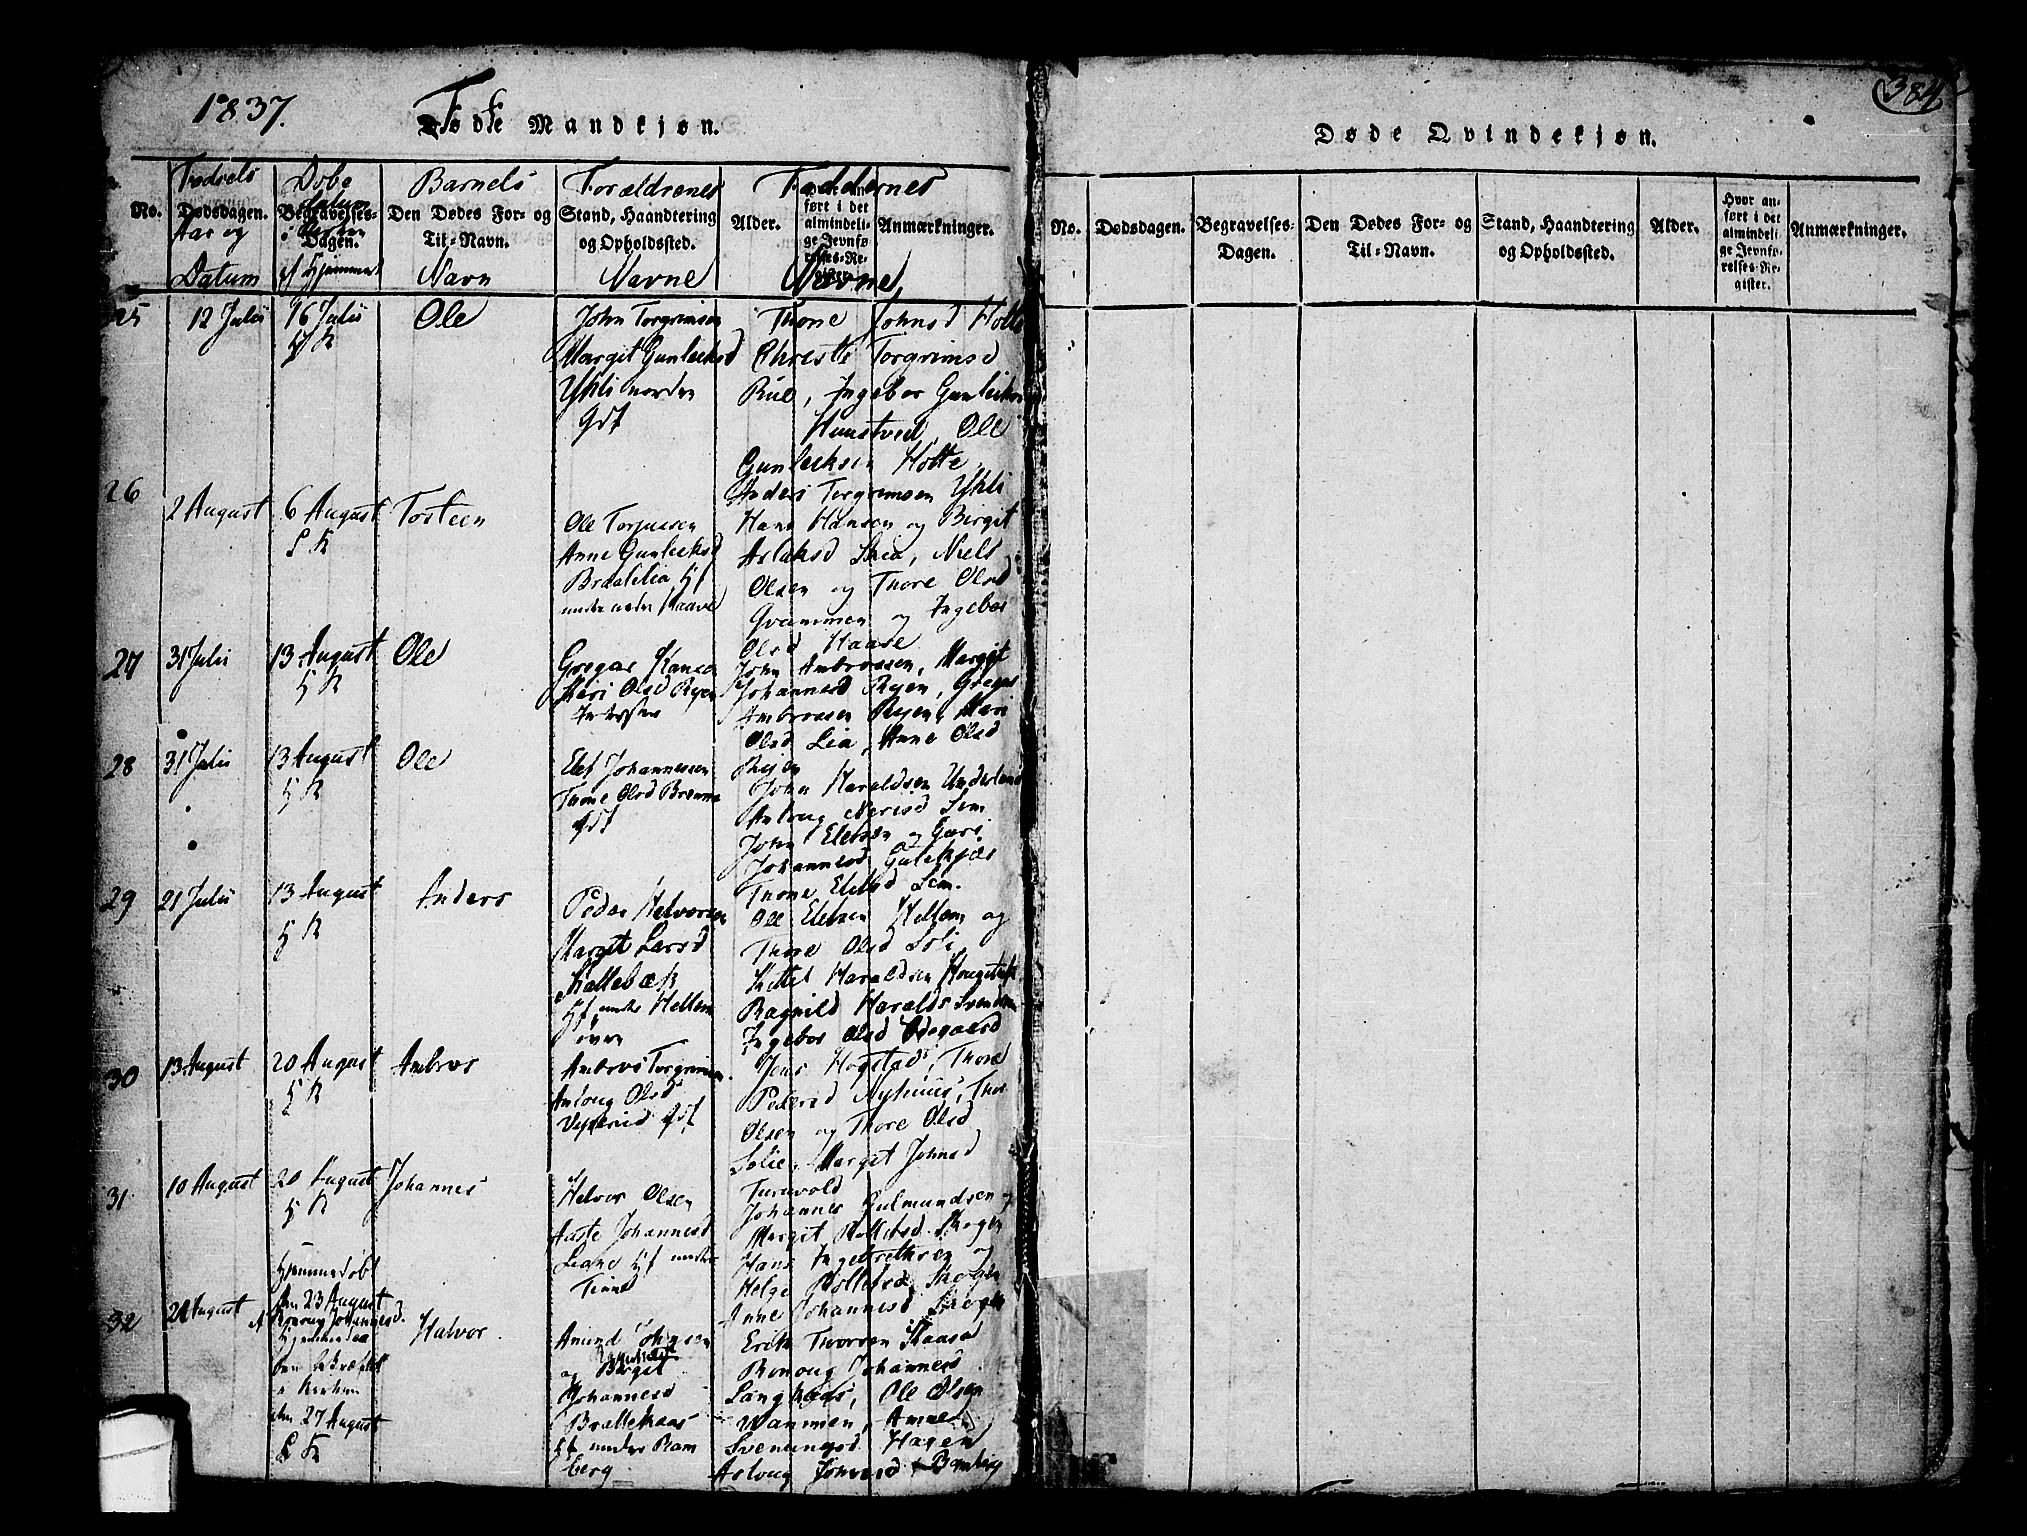 1837.
Fødte Mandkjøn.
No.
Fødsels
Dødsdagen.
Aar og
Datum
Døbe
datum
Begravelses-
i Kirken
Dagen.
Hjemmet
Barnets
Den Dødes For- og
Til-Navn.
Navn
Forældrenes
Stand, Haandtering
og Opholdssted.
Navne
Faddernes
Alder.
ført i det
almindeli-
ge Jevnfø-
relses-Re-
gister.
Anmærkninger.
Navne
25
12 Julii
16 Julii
HK
Ole
John Torgrimsen
Margit Gunleiksd
Yhli nordre
Gdf
Thone Johnsd Holte
Christi Torgrimsd
Rue, Ingebor Gunleiksd
Hunstved, Ole
Gunleiksen Holte
Anders Torgrimsen Yhli
26
2 August
6 August
S K
Torsteen
Ole Torjussen
Anne Gunleiksd
Braalilia Hf
under nedre Haave
Hans Hansen og Birgit
Aslaksd Lia, Niels
Olsen og Thore Olsd
Gvammen og Ingebor
Olsd Haave
27
31 Julii
13 August
H K
Ole
Gregar Hansen
Kari Olsd Ryen
Inderster
John Ambrossen, Margit
Johannesd Ryen, Gregar
Ambrossen Ryen, Mari
Olsd Lia, Anne Olsd
Ryen
28
31 Julii
13 August
H K
Ole
Elef Johannessen
Thone Olsd Brenna
Gdf
John Haraldsen Underland
Anloug Nerisd Sem
John Elefsen og Guro
Johannesd Gulekjær
Thone Elefsd Sem.
29
21 Julii
13 August
H K
Anders
Peder Halvorsen
Margit Larsd
Kallebæk
Hf under Hellem
øvre
Ole Elefsen Hellem og
Thore Olsd Soli
Kittel Haraldsen Hougstuk
Ragnild Haralds Svendsen
Ingebor Olsd Ødegaard
30
13 August
20 August
H K
Ambros
Ambros Torgrimsen
Anloug Olsd
Vesterud Gdf
Jens Hogstad, Thore
Pedersd Nyhuus, Thor
Olsen og Thore Olsd
Solie, Marget Johnsd
Turuvold
31
10 August
20 August
H K
Johannes
Halvor Olsen
Aaste Johannesd
Leane Hf under
Tinne
Johannes Gulmundsen og
Margit Rolleivsd Skogen
Hans Ingebrethsen og
Helge Rolleivsd Skogen
Anne Johannesd Skogen
32
21 August
Hjemmedøbt
den 23 August
af Ronoug Johannesd.
den bekræftet
i Kirken
den 27 August
S K
Halvor.
Amund Johnsen
og Birget
Johannesd
Brattekaas
Hf under Ram
berg
Erik Thorsen Haasd
Ronoug Johannesd
Langkaas, Ole Olsen
Wammen, Anne
Svenungsd Hagen
Aslaug Johnsd Ramberg
384
Døde Qvindekjøn.
No.
Dødsdagen.
Begravelses-
Dagen.
Den Dødes For- og
Til-Navn.
Stand, Haandtering
og Opholdssted.
Alder.
Hvor an-
ført i det
almindeli-
ge Jevnfø-
relses-Re-
gister.
Anmærkninger.